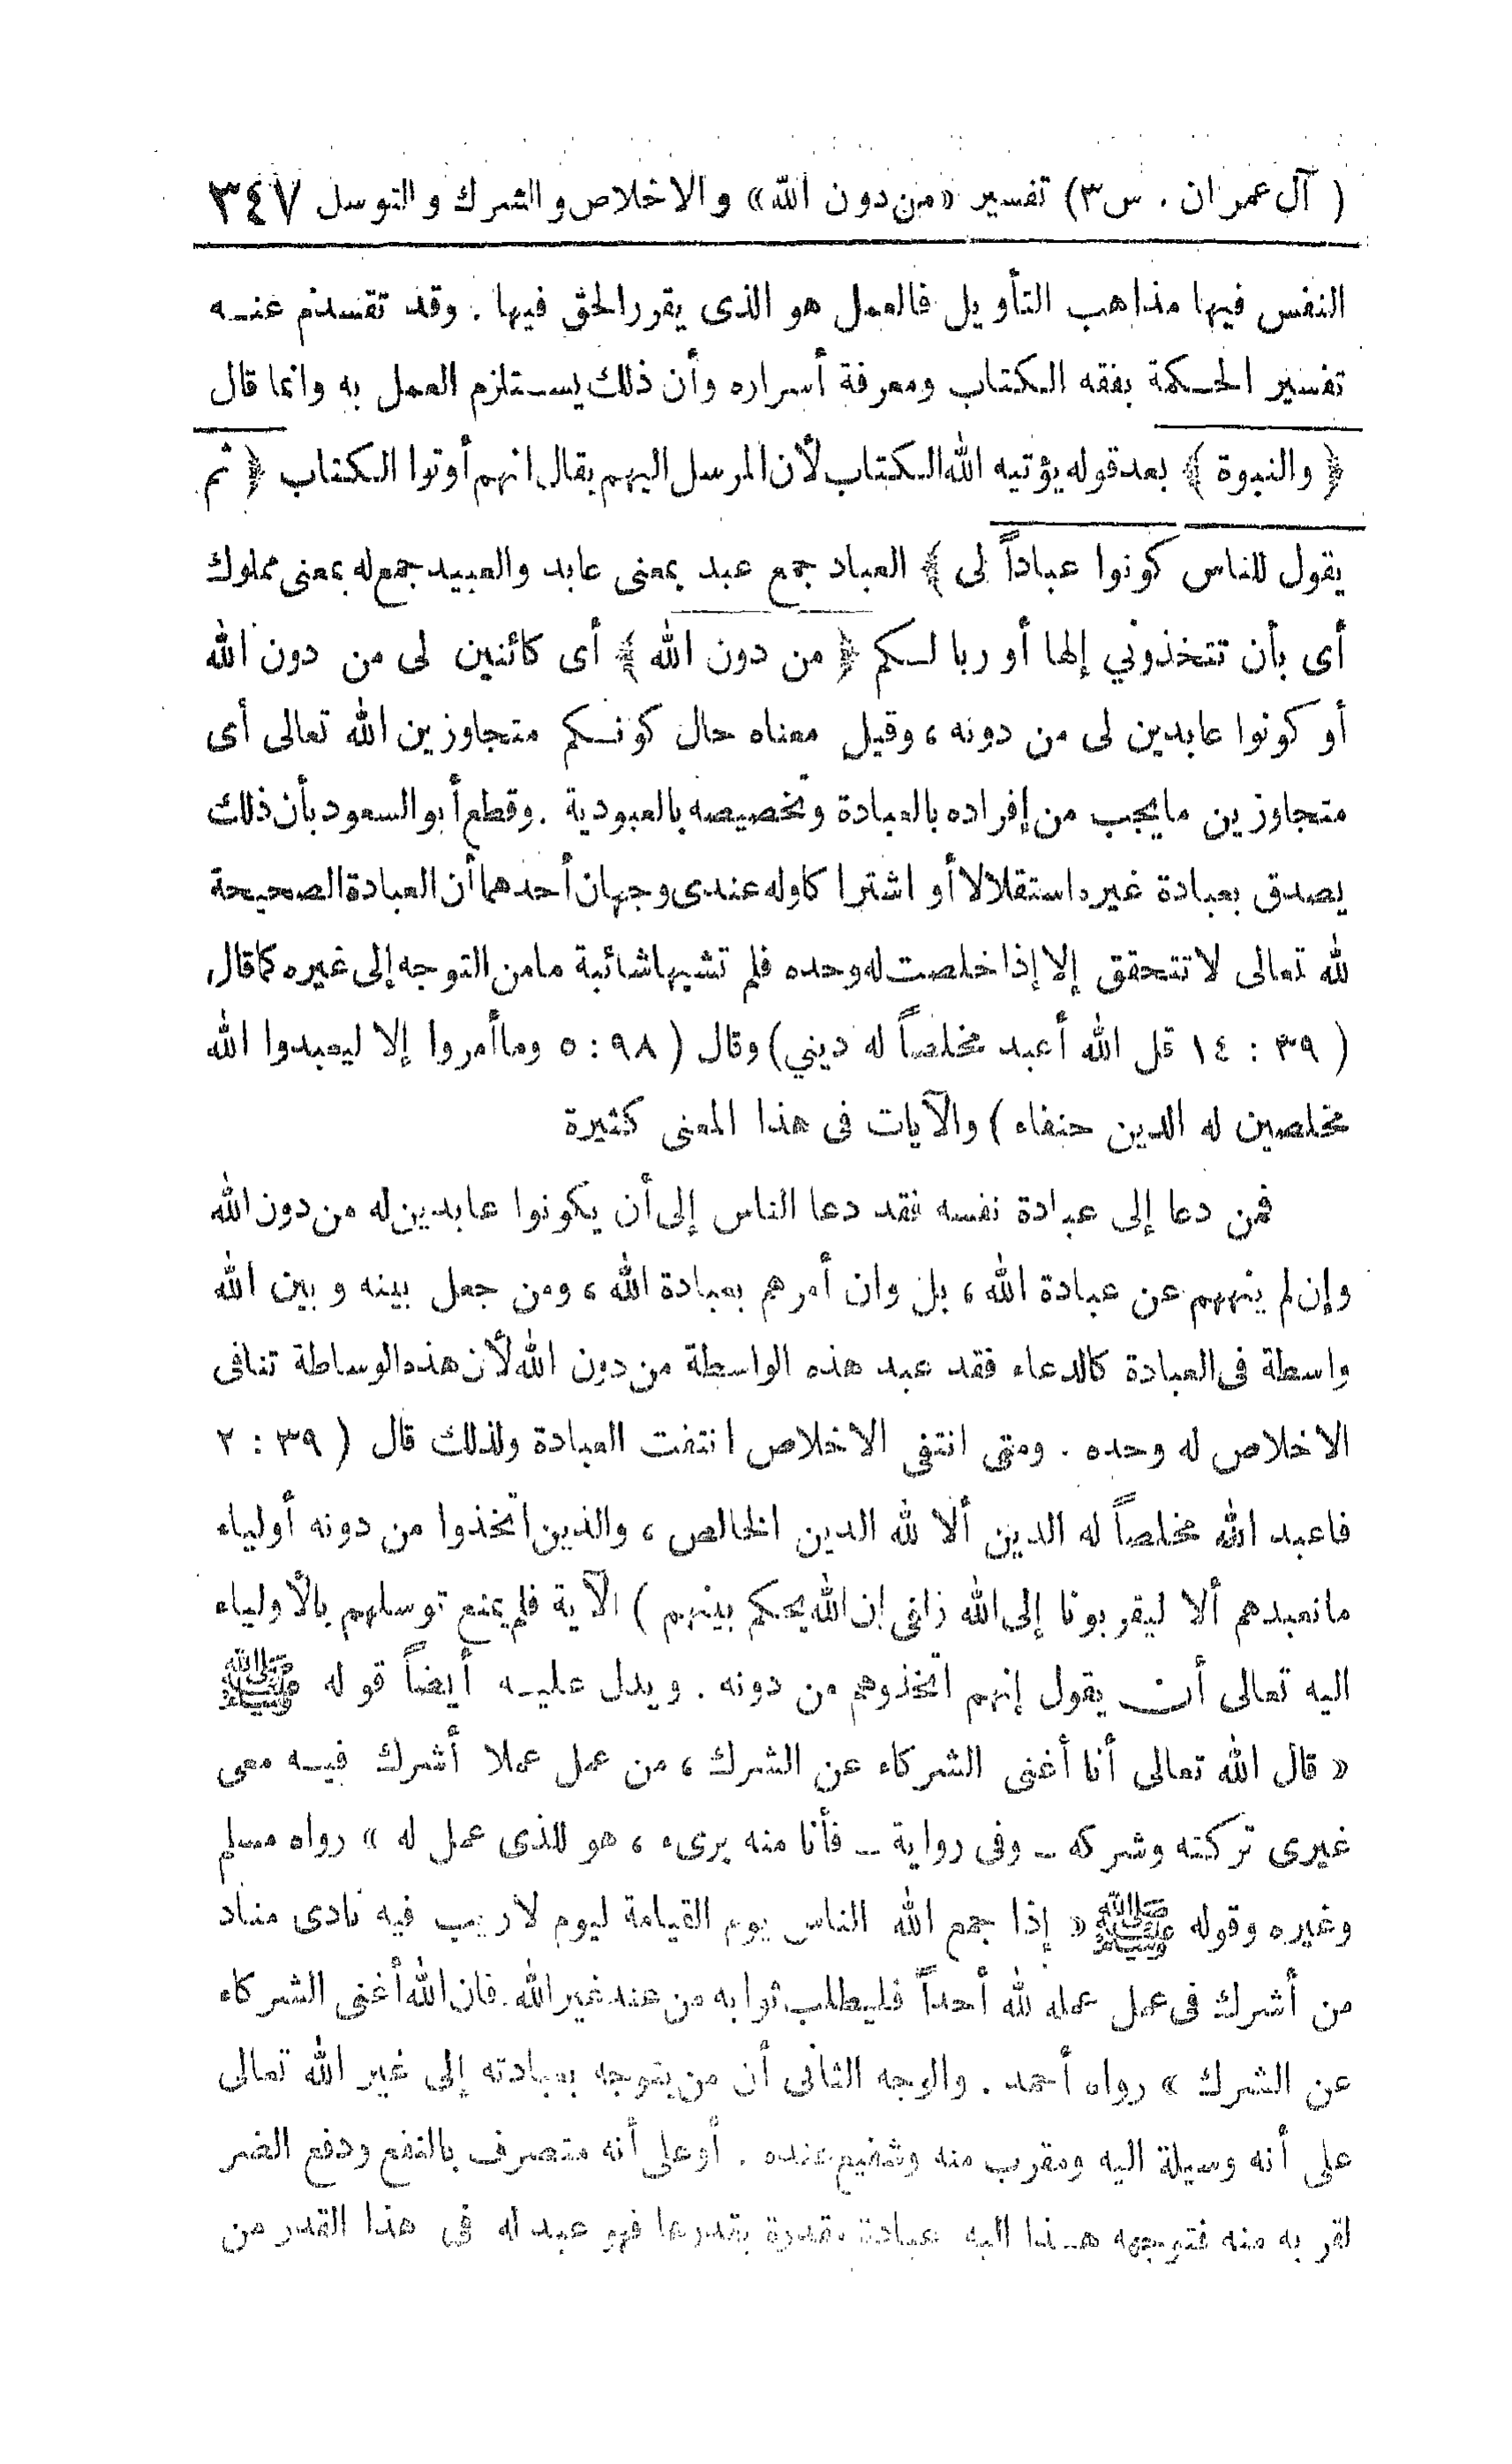 ( آل عمران . س ٣) تفسير «من دون الله» والاخلاص والشرك والتوسل ٣٤٧
النفس فيها مذاهب التأويل فالعمل هو الذى يقرر الحق فيها . وقد تقدم عنه
تفسير الحكمة بفقه الكتاب ومعرفة أسراره وأن ذلك يستلزم العمل به وانما قال
﴿ والنبوة ﴾ بعد قوله يؤتيه الله الكتاب لأن المرسل اليهم يقال انهم أوتوا الكتاب ﴿ ثم
يقول للناس كونوا عباداً لى ﴾ العباد جمع عبد بمعنى عابد والعبيد جمع له بمعنى مملوك
أى بأن تتخذوني إلها أو ربا لكم ﴿ من دون الله ﴾ أى كائنين لى من دون الله
أو كونوا عابدين لى من دونه ، وقيل معناه حال كونكم متجاوزين الله تعالى أى
متجاوزين ما يجب من إفراده بالعبادة وتخصيصه بالعبودية . وقطع أبو السعود بأن ذلك
يصدق بعبادة غيره استقلالا أو اشتراكا وله عندى وجهان أحدهما أن العبادة الصحيحة
لله تعالى لا تتحقق إلا إذا خلصت له وحده فلم تشبها شائبة ما من التوجه إلى غيره كما قال
( ٣٩ : ١٤ قل الله أعبد مخلصاً له ديني) وقال ( ٩٨ : ٥ وما أمروا إلا ليعبدوا الله
مخلصين له الدين حنفاء ) والآيات فى هذا المعنى كثيرة
فمن دعا إلى عبادة نفسه فقد دعا الناس إلى أن يكونوا عابدين له من دون الله
وإن لم ينههم عن عبادة الله ، بل وان أمرهم بعبادة الله ، ومن جعل بينه وبين الله
واسطة فى العبادة كالدعاء فقد عبد هذه الواسطة من دون الله لأن هذه الوساطة تنافى
الاخلاص له وحده . ومتى انتفى الاخلاص انتفت العبادة ولذلك قال ( ٣٩ : ٢
فاعبد الله مخلصاً له الدين ألا لله الدين الخالص ، والذين اتخذوا من دونه أولياء
ما نعبدهم ألا ليقربونا إلى الله زلفى إن الله يحكم بينهم ) الآية فلم يمنع توسلهم بالأولياء
اليه تعالى أن يقول إنهم اتخذوهم من دونه . ويدل عليه أيضاً قوله ﷺ
« قال الله تعالى أنا أغنى الشركاء عن الشرك ، من عمل عملا أشرك فيه معى
غيرى تركته وشركه ـ وفى رواية ـ فأنا منه برىء ، هو للذى عمل له » رواه مسلم
وغيره وقوله ﷺ « إذا جمع الله الناس يوم القيامة ليوم لا ريب فيه نادى مناد
من أشرك فى عمل عمله لله أحداً فليطلب ثوابه من عند غير الله فان الله أغنى الشركاء
عن الشرك » رواه أحمد . والوجه الثانى أن من يتوجه بعبادته إلى غير الله تعالى
على أنه وسيلة اليه ومقرب منه وشفيع عنده . أو على أنه متصرف بالنفع ودفع الضر
لقربه منه فتوجهه هذا اليه عبادة مقدرة بقدرها فهو عبد له فى هذا القدر من